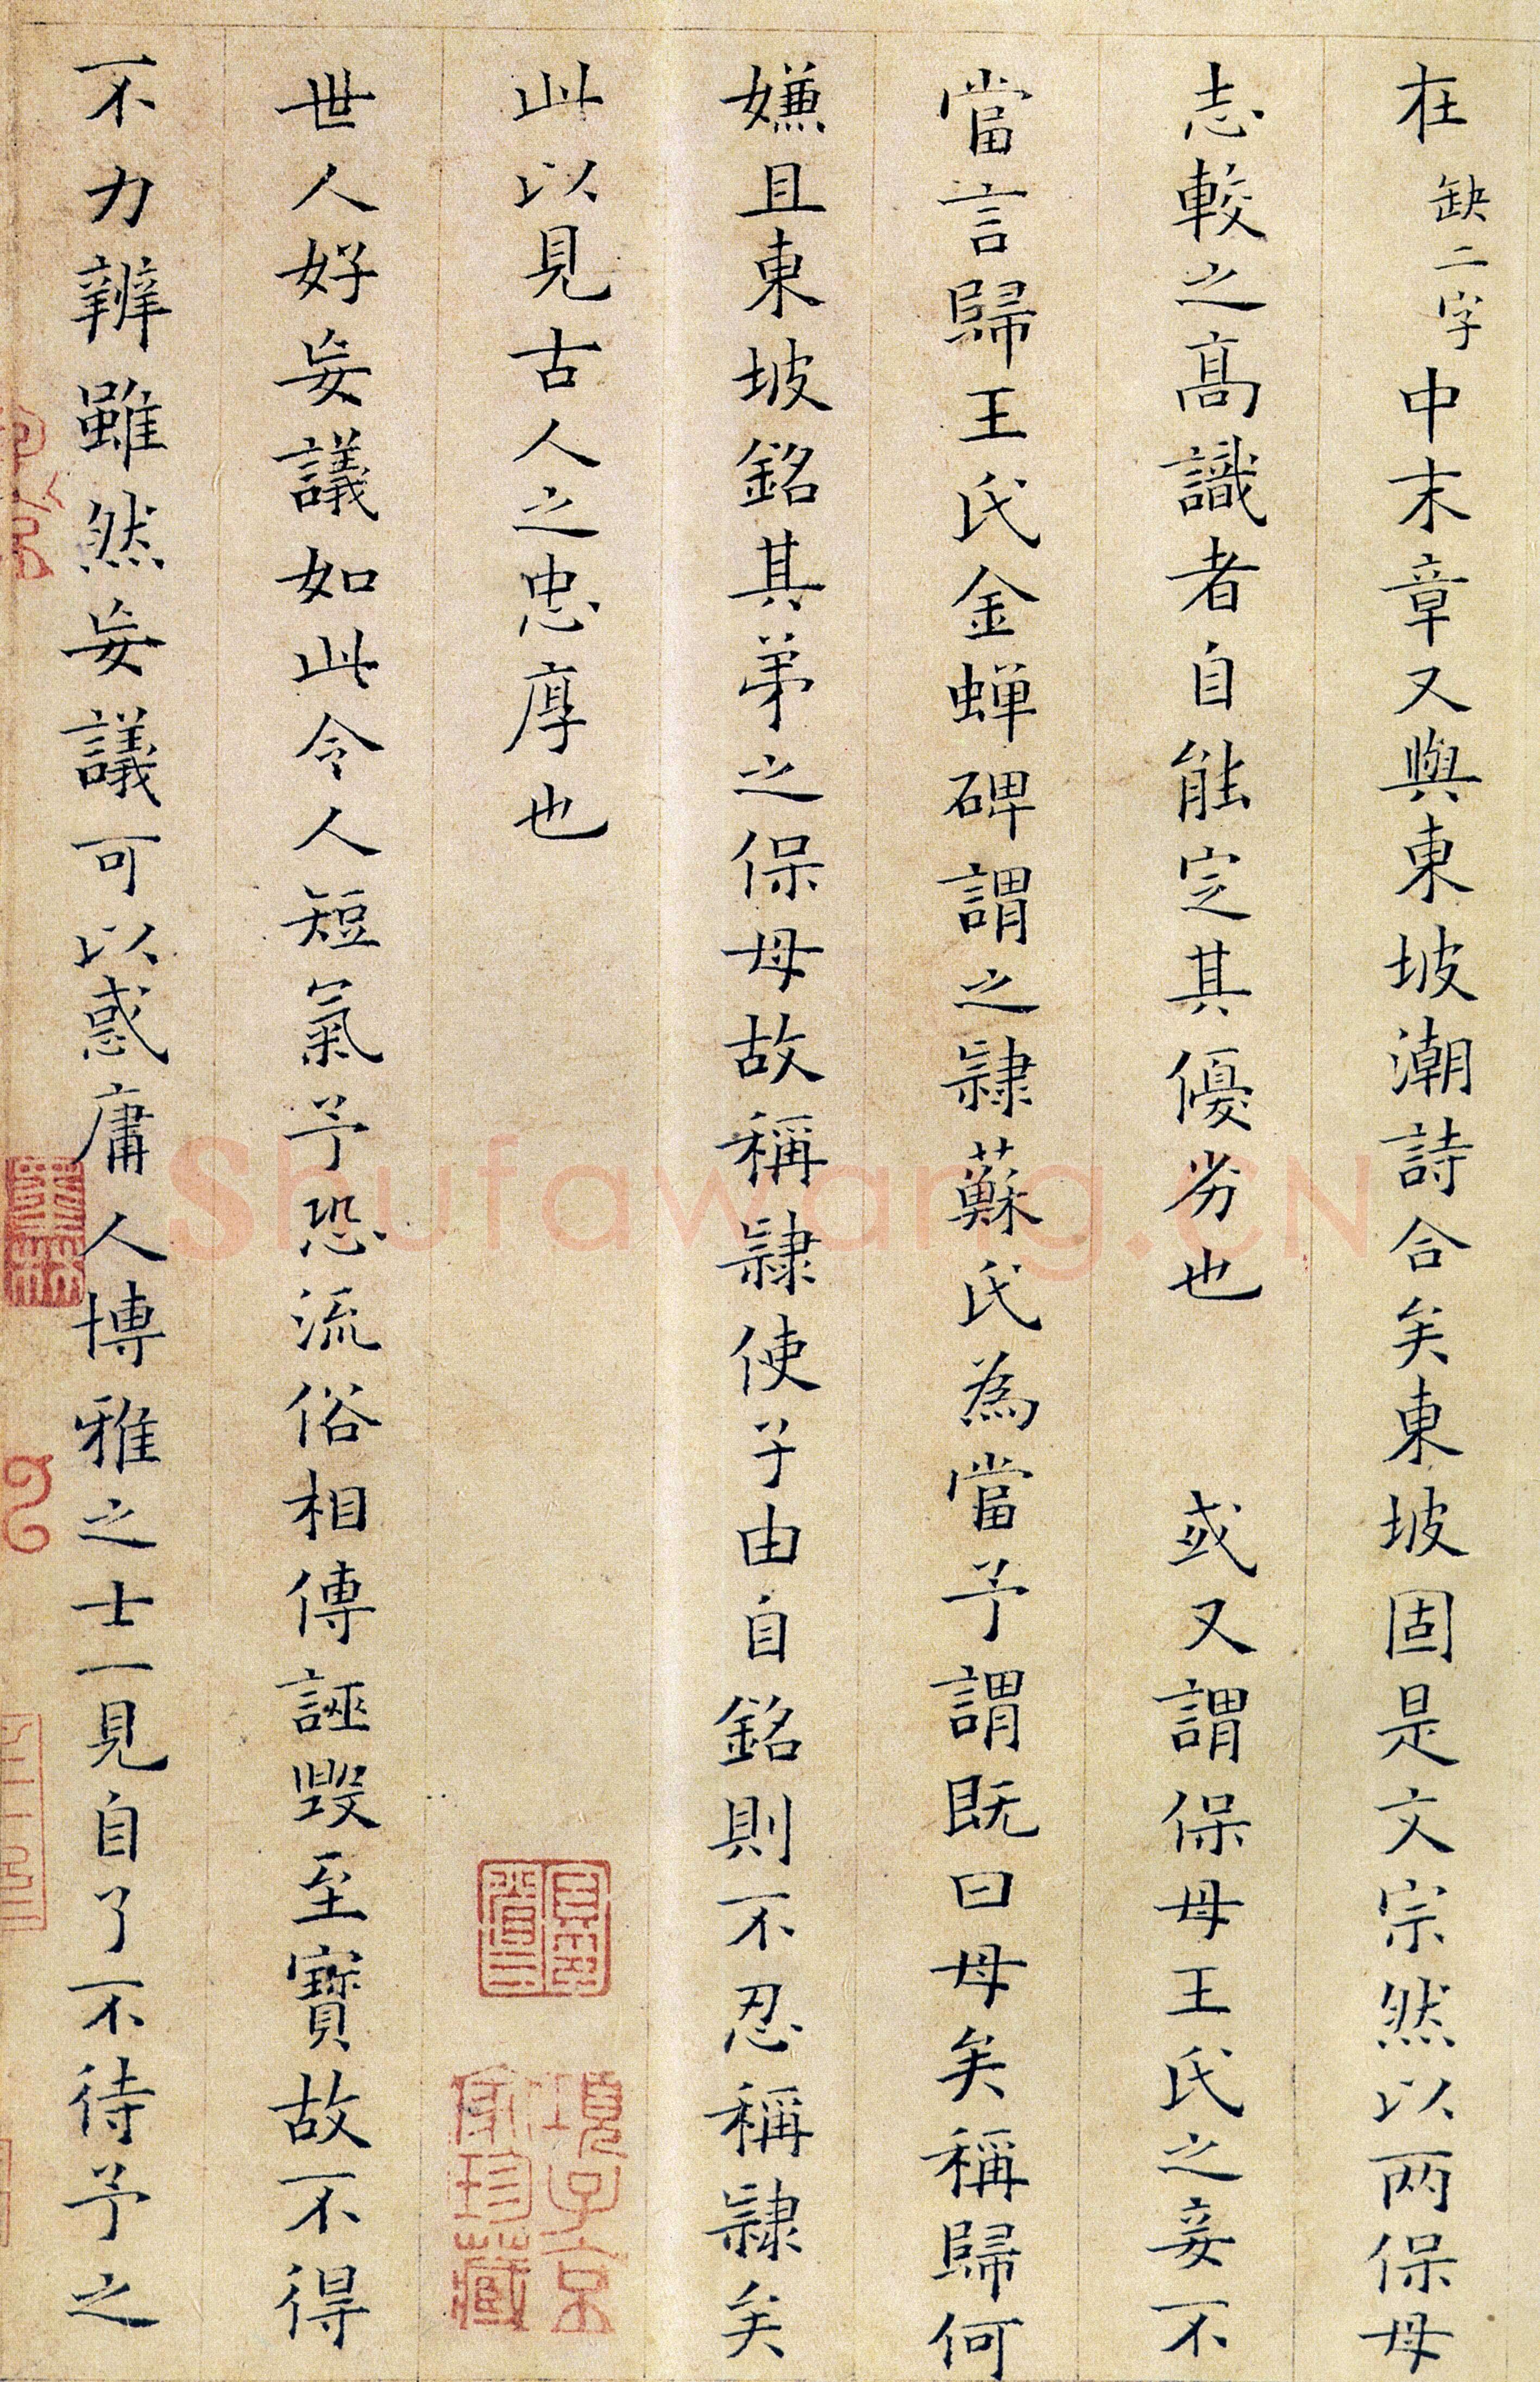 在缺二字中末章又與東坡潮詩合矣東坡固是文宗然以两保母
志較之高識者自能定其優劣也 或又謂保母王氏之妾不
當言歸王氏金蟬碑謂之隷蘇氏為當予謂既曰母矣稱歸何
嫌且東坡銘其弟之保母故稱隷使子由自銘則不忍稱隷矣
此以見古人之忠厚也
世人好妄議如此令人短氣予恐流俗相傳誣毀至寶故不得
不力辨雖然妄議可以惑庸人博雅之士一見自了不待予之
項子京
家珍藏
Shufawang.CN